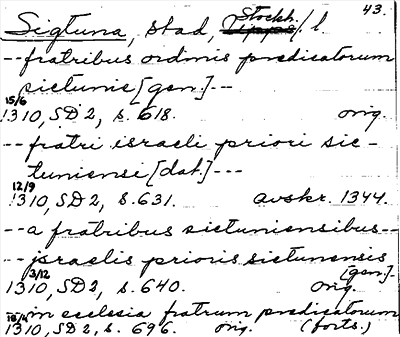 43.
Sigtuna, stad, Stockh. l.
--fratribus ordinis predicatorum
sictunie [gen.]--
15/6
1310, SD 2, s. 618. orig.
--fratri israeli priori sic-
tuniensi [dat.]---
12/9
1310, SD 2, s. 631. avskr. 1344.
--a fratribus sictuniensibus--
--jsraelis prioris sictunensis
3/12 [gen.]-
1310, SD 2, s. 640. orig.
--in ecclesia fratrum predicatorum
1310, SD 2, s. 696. orig. (forts.)